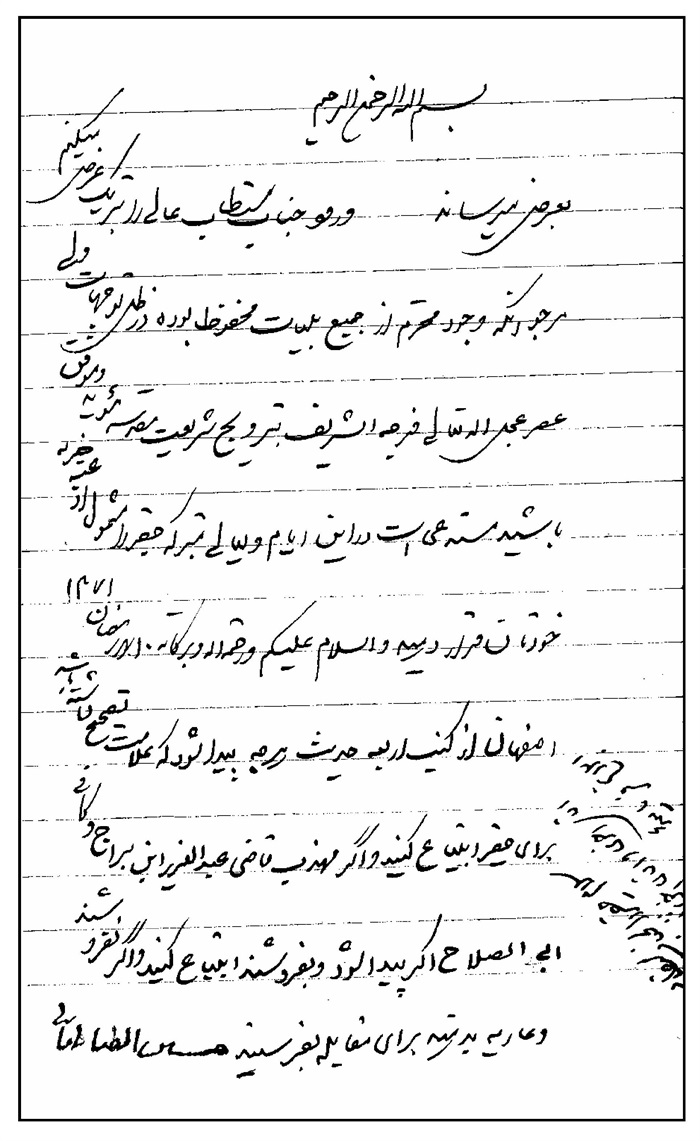 بسم الله الرحمن الرحیم
بعرض میرساند ورود جناب مستطاب عالی را تبریک عرض میکنیم
مرجو آنکه وجود محترم از جمیع بلیات محفوظ بوده در ظل توجهات ولی
عصر عجل الله تعالی فرجه الشریف بترویج شریعت مقدسه موفق
باشید مستدعی است در این ایام و لیالی متبرکه حقیر را مشمول ادعیه خیریه
خودتان قرار دهید والسلام علیکم ورحمة الله وبرکاته ۱۰ لارمضان ۱۳۷۱
اصفهان از کتب اربعه حدیث هرچه پیدا شود که علامت تصحیح داشته باشد
برای حقیر ابتیاع کنید واگر مهذب قاضی عبدالعزیز ابن براج و کافی
ابی الصلاح اگر پیدا شود و بفروشند ابتیاع کنید واگر نفروشند
وعاریه بدهند برای مقابله بفرستید حسین الطباطبائی